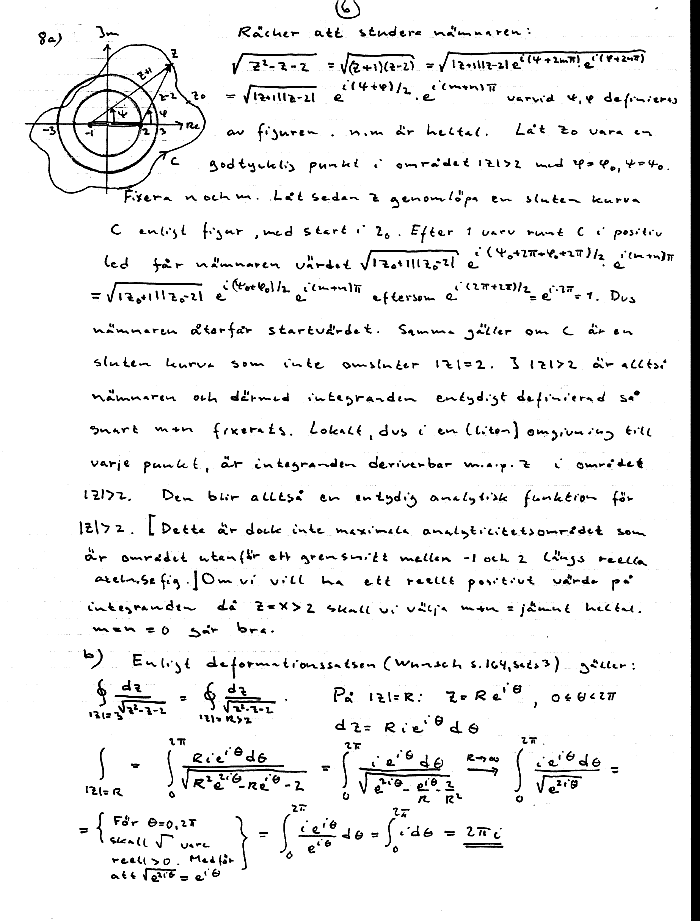 6
8a)
Im
Räcker att studera nämnaren:
√z²-z-2 = √(z+1)(z-2) = √|z+1||z-2| e^{i(ψ+2mπ)} · e^{i(φ+2nπ)}
= √|z+1||z-2| e^{i(ψ+φ)/2} · e^{i(m+n)π} varvid ψ, φ definieras
z z+1 z-2 z₀ ψ φ -3 -1 2 3 Re C
av figuren. n, m är heltal. Låt z₀ vara en
godtycklig punkt i området |z|>2 med φ=φ₀, ψ=ψ₀.
Fixera n och m. Låt sedan z genomlöpa en sluten kurva
C enligt figur, med start i z₀. Efter 1 varv runt C i positiv
led får nämnaren värdet √|z₀+1||z₀-2| e^{i(ψ₀+2π+φ₀+2π)/2} · e^{i(m+n)π}
= √|z₀+1||z₀-2| e^{i(ψ₀+φ₀)/2} e^{i(m+n)π} eftersom e^{i(2π+2π)/2} = e^{i·2π} = 1. Dvs
nämnaren återfår startvärdet. Samma gäller om C är en
sluten kurva som inte omsluter |z|=2. I |z|>2 är alltså
nämnaren och därmed integranden entydigt definierad så
snart m+n fixerats. Lokalt, dvs i en (liten) omgivning till
varje punkt, är integranden deriverbar m.a.p. z i området
|z|>2. Den blir alltså en entydig analytisk funktion för
|z|>2. [Detta är dock inte maximala analyticitetsområdet som
är området utanför ett grensnitt mellan -1 och 2 längs reella
axeln, se fig.] Om vi vill ha ett reellt positivt värde på
integranden då z=x>2 skall vi välja m+n = jämnt heltal.
m=n=0 går bra.
b) Enligt deformationssatsen (Wunsch s.164, sats 3) gäller:
∮_{|z|=3} dz/√z²-z-2 = ∮_{|z|=R>2} dz/√z²-z-2 . På |z|=R: z=Re^{iθ}, 0≤θ<2π
dz = Rie^{iθ}dθ
∫_{|z|=R} = ∫_0^{2π} Rie^{iθ}dθ/√R²e^{2iθ}-Re^{iθ}-2 = ∫_0^{2π} ie^{iθ}dθ/√e^{2iθ}-e^{iθ}/R-2/R² R→∞ → ∫_0^{2π} ie^{iθ}dθ/√e^{2iθ} =
= {För θ=0,2π skall √ vara reell>0. Medför att √e^{2iθ} = e^{iθ}} = ∫_0^{2π} ie^{iθ}/e^{iθ} dθ = ∫_0^{2π} i dθ = 2πi